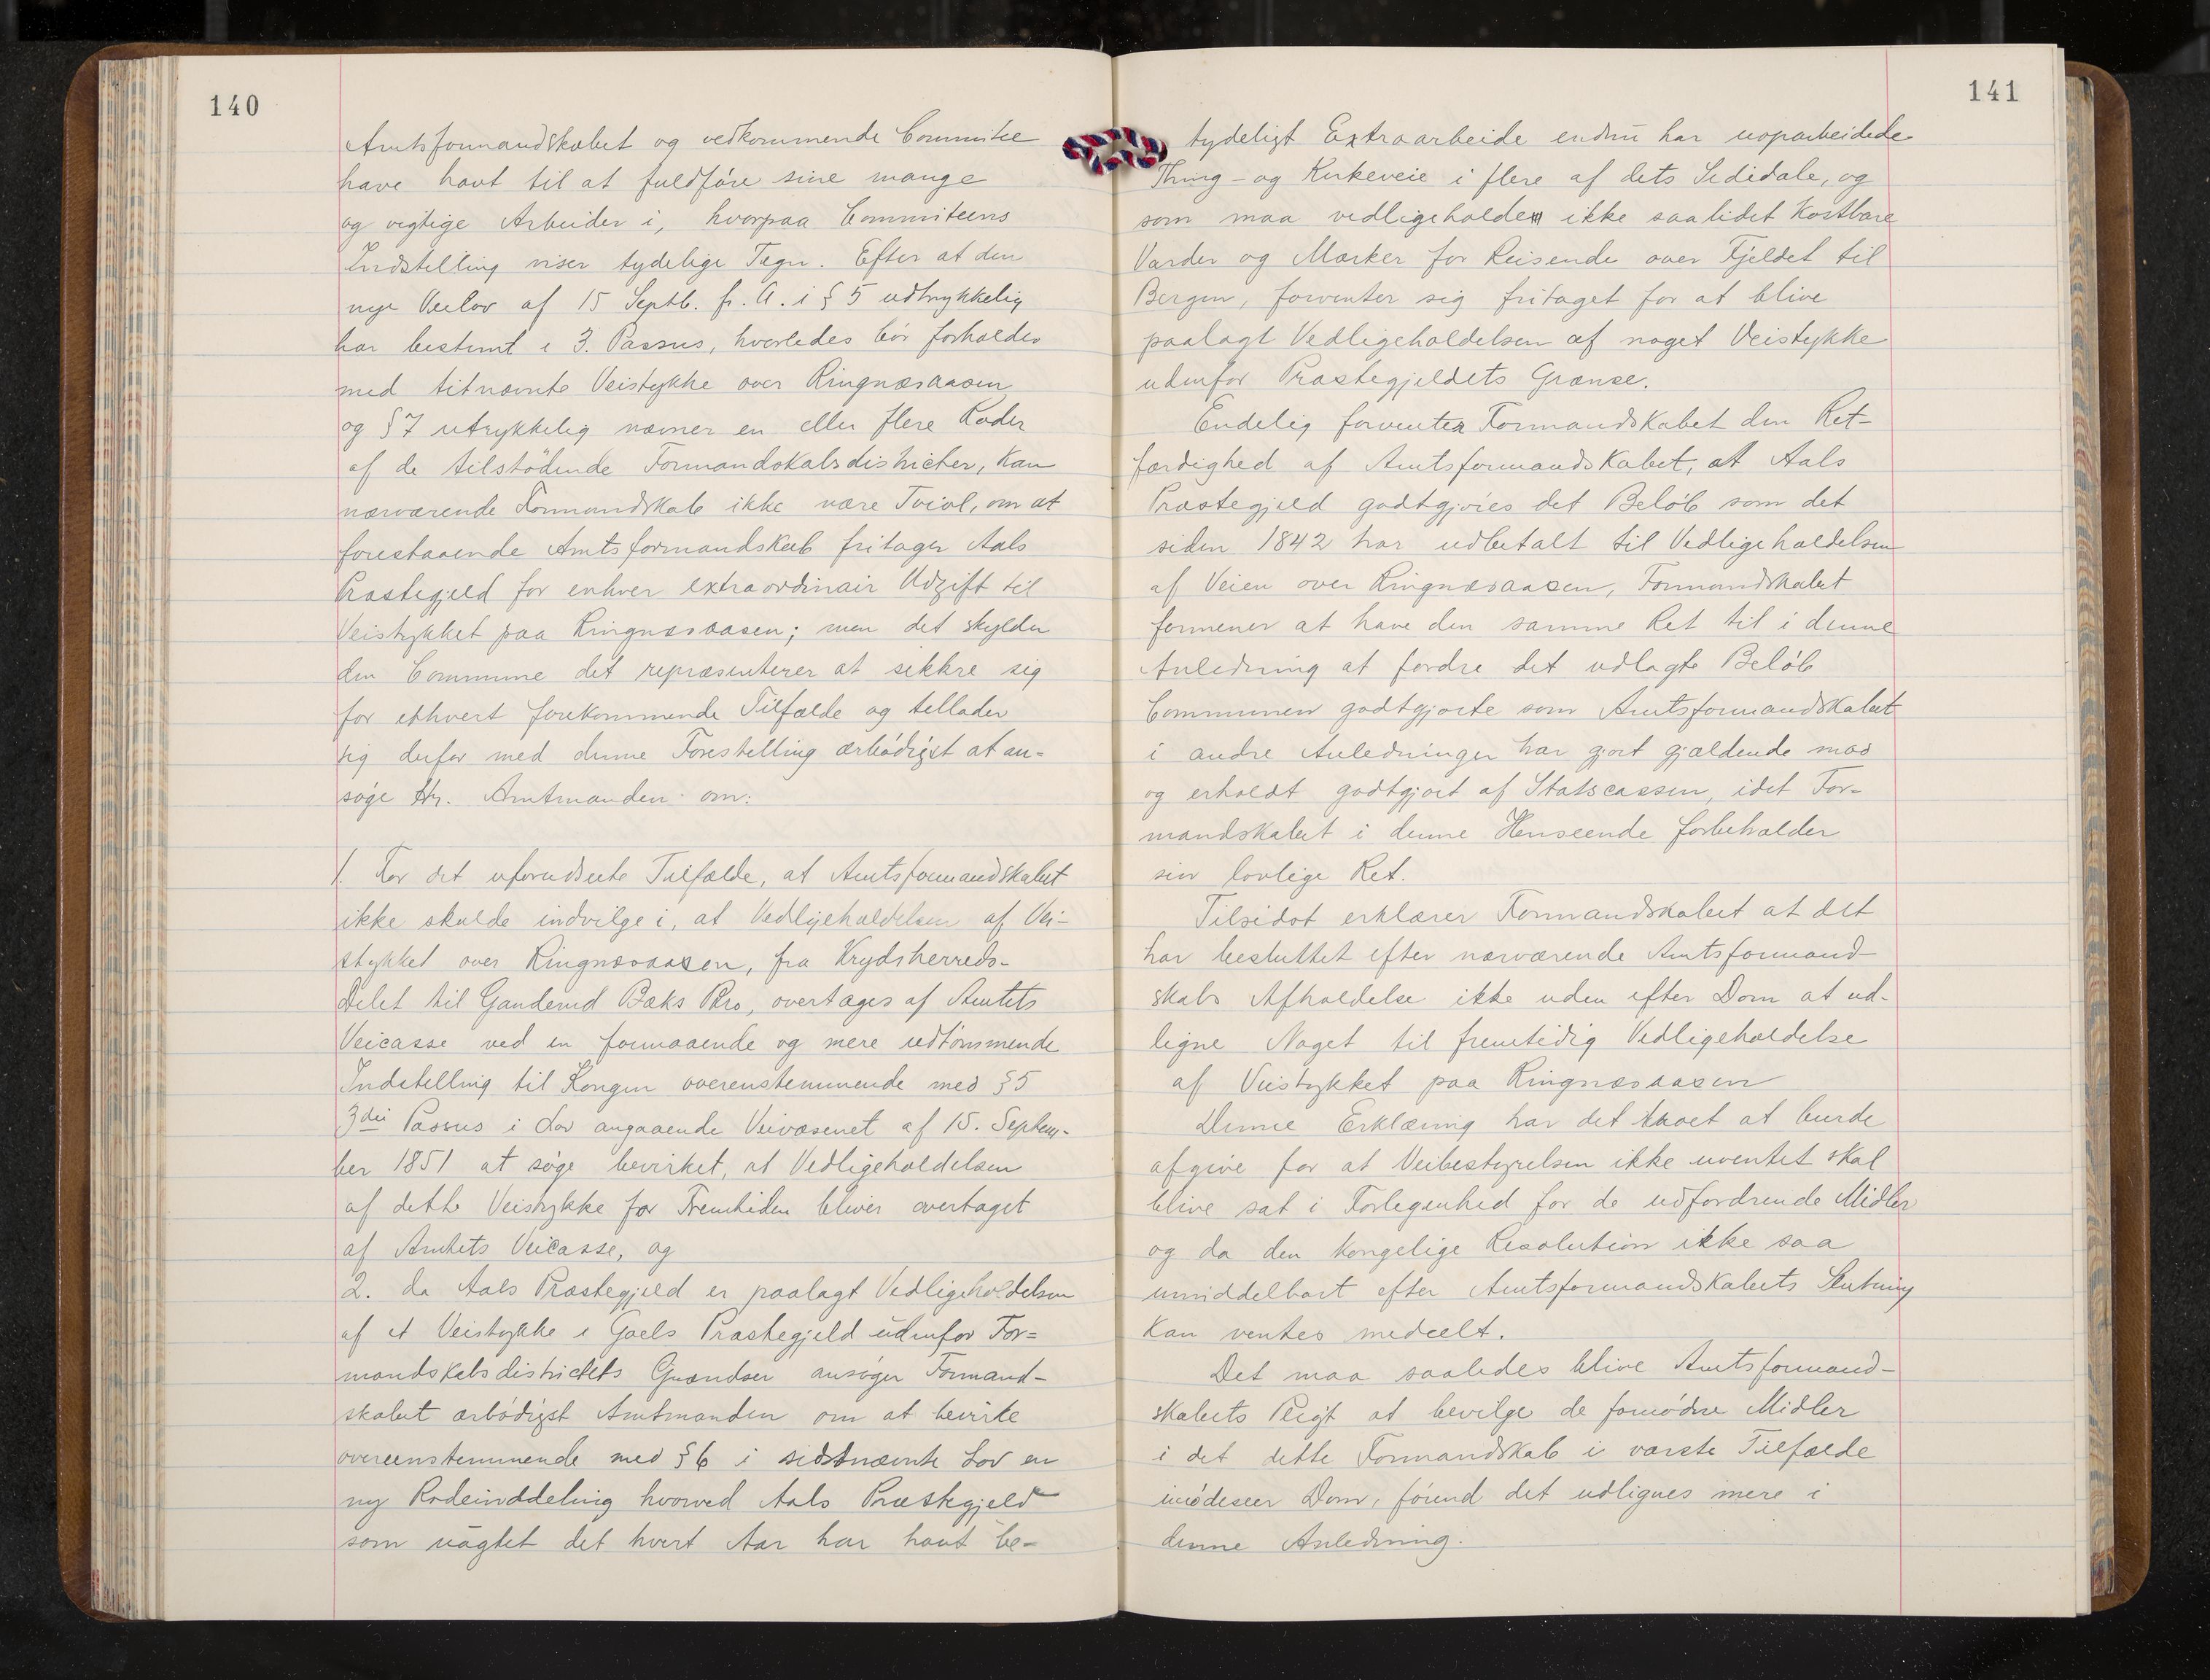 140
Amtsformandskabet og vedkommende Committee
have havt til at fuldføre sine mange
og vigtige Arbeider i, hvorpaa Committeens
Indstilling viser tydelige Tegn. Efter at den
nye Veilov af 15 Septb. f. A. i § 5 udtrykkelig
har bestemt i 3. Passus, hvorledes bör forholdes
med titnævnte Veistykke over Ringnæsaasen
og § 7 utrykkelig nævner en eller flere Roder
af de tilstödende Formandskabsdistricter, kan
nærværende Formandskab ikke være Tvivl, om at
forestaaende Amtsformandskab fritager Aals
Præstegjeld for enhver extraordinair Udgift til
Veistykket paa Ringnæsaasen; men det skylder
den Commune det repræsenterer at sikkre sig
for ethvert forekommende Tilfælde og tellader
sig derfor med denne Forestelling ærbödigst at an-
søge Hr. Amtmanden om:
1. For det uforudseete Tilfælde, at Amtsformandskabet
ikke skulde indvilge i, at Vedligeholdelsen af Vei-
stykket over Ringnæsaasen, fra Krydsherreds-
Delet til Ganderud Bæks Bro, overtages af Amtets
Veicasse ved en formaaende og mere udtömmende
Indstelling til Kongen overenstemmende med § 5
3die Passus i Lov angaaende Veivæsenet af 15. Septem-
ber 1851 at søge bevirket, at Vedligeholdelsen
af dette Veistykke for Fremtiden bliver overtaget
af Amtets Veicasse, og
2. da Aals Præstegjeld er paalagt Vedligeholdelsen
af et Veistykke i Goels Præstegjeld udenfor For=
mandskabsdistrictets Grændser ansøger Formand-
skabet ærbödigst Amtmanden om at bevirke
overeenstemmende med § 6 i sidstnævnte Lov en
ny Rodeinddeling hvorved Aals Præstegjeld
som uagtet det hvert Aar har havt be-
141
tydeligt Extraarbeide endnu har uoparbeidede
Thing- og Kirkeveie i flere af dets Sididale, og
som maa vedligeholde ikke saalidet Kostbare
Varder og Mærker for Reisende over Fjeldet til
Bergen, forventer sig fritaget for at blive
paalagt Vedligeholdelsen af noget Veistykke
udenfor Præstegjeldets Grænse.
Endelig forventer Formandskabet den Ret-
færdighed af Amtsformandskabet, at Aals
Præstegjeld godtgjöres det Belöb som det
siden 1842 har udbetalt til Vedligeholdelsen
af Veien over Ringnæsaasen, Formandskabet
formener at have den samme Ret til i denne
Anledning at fordre det udlagte Belöb
Communen godtgjorte som Amtsformandskabet
i andre Anledninger har gjort gjældende mod
og erholdt godtgjort af Statscassen, idet For=
mandskabet i denne Henseende forbeholder
sin lovlige Ret.
Tilsidst erklærer Formandskabet at det
har besluttet efter nærværende Amtsformand-
skabs Afholdelse ikke uden efter Dom at ud-
ligne Noget til fremtidig Vedligeholdelse
af Veistykket paa Ringnæsaasen
Denne Erklæring har det troet at burde
afgive for at Veibestyrelsen ikke uventet skal
blive sat i Forlegenhed for de udfordrende Midler
og da den kongelige Resolution ikke saa
umiddelbart efter Amtsformandskabets Slutning
kan ventes medeelt.
Det maa saaledes blive Amtsformand-
skabets Pligt at bevilge de fornödne Midler
i det dette Formandskab i værste Tilfælde
imödeseer Dom, förend det udlignes mere i
denne Anledning.